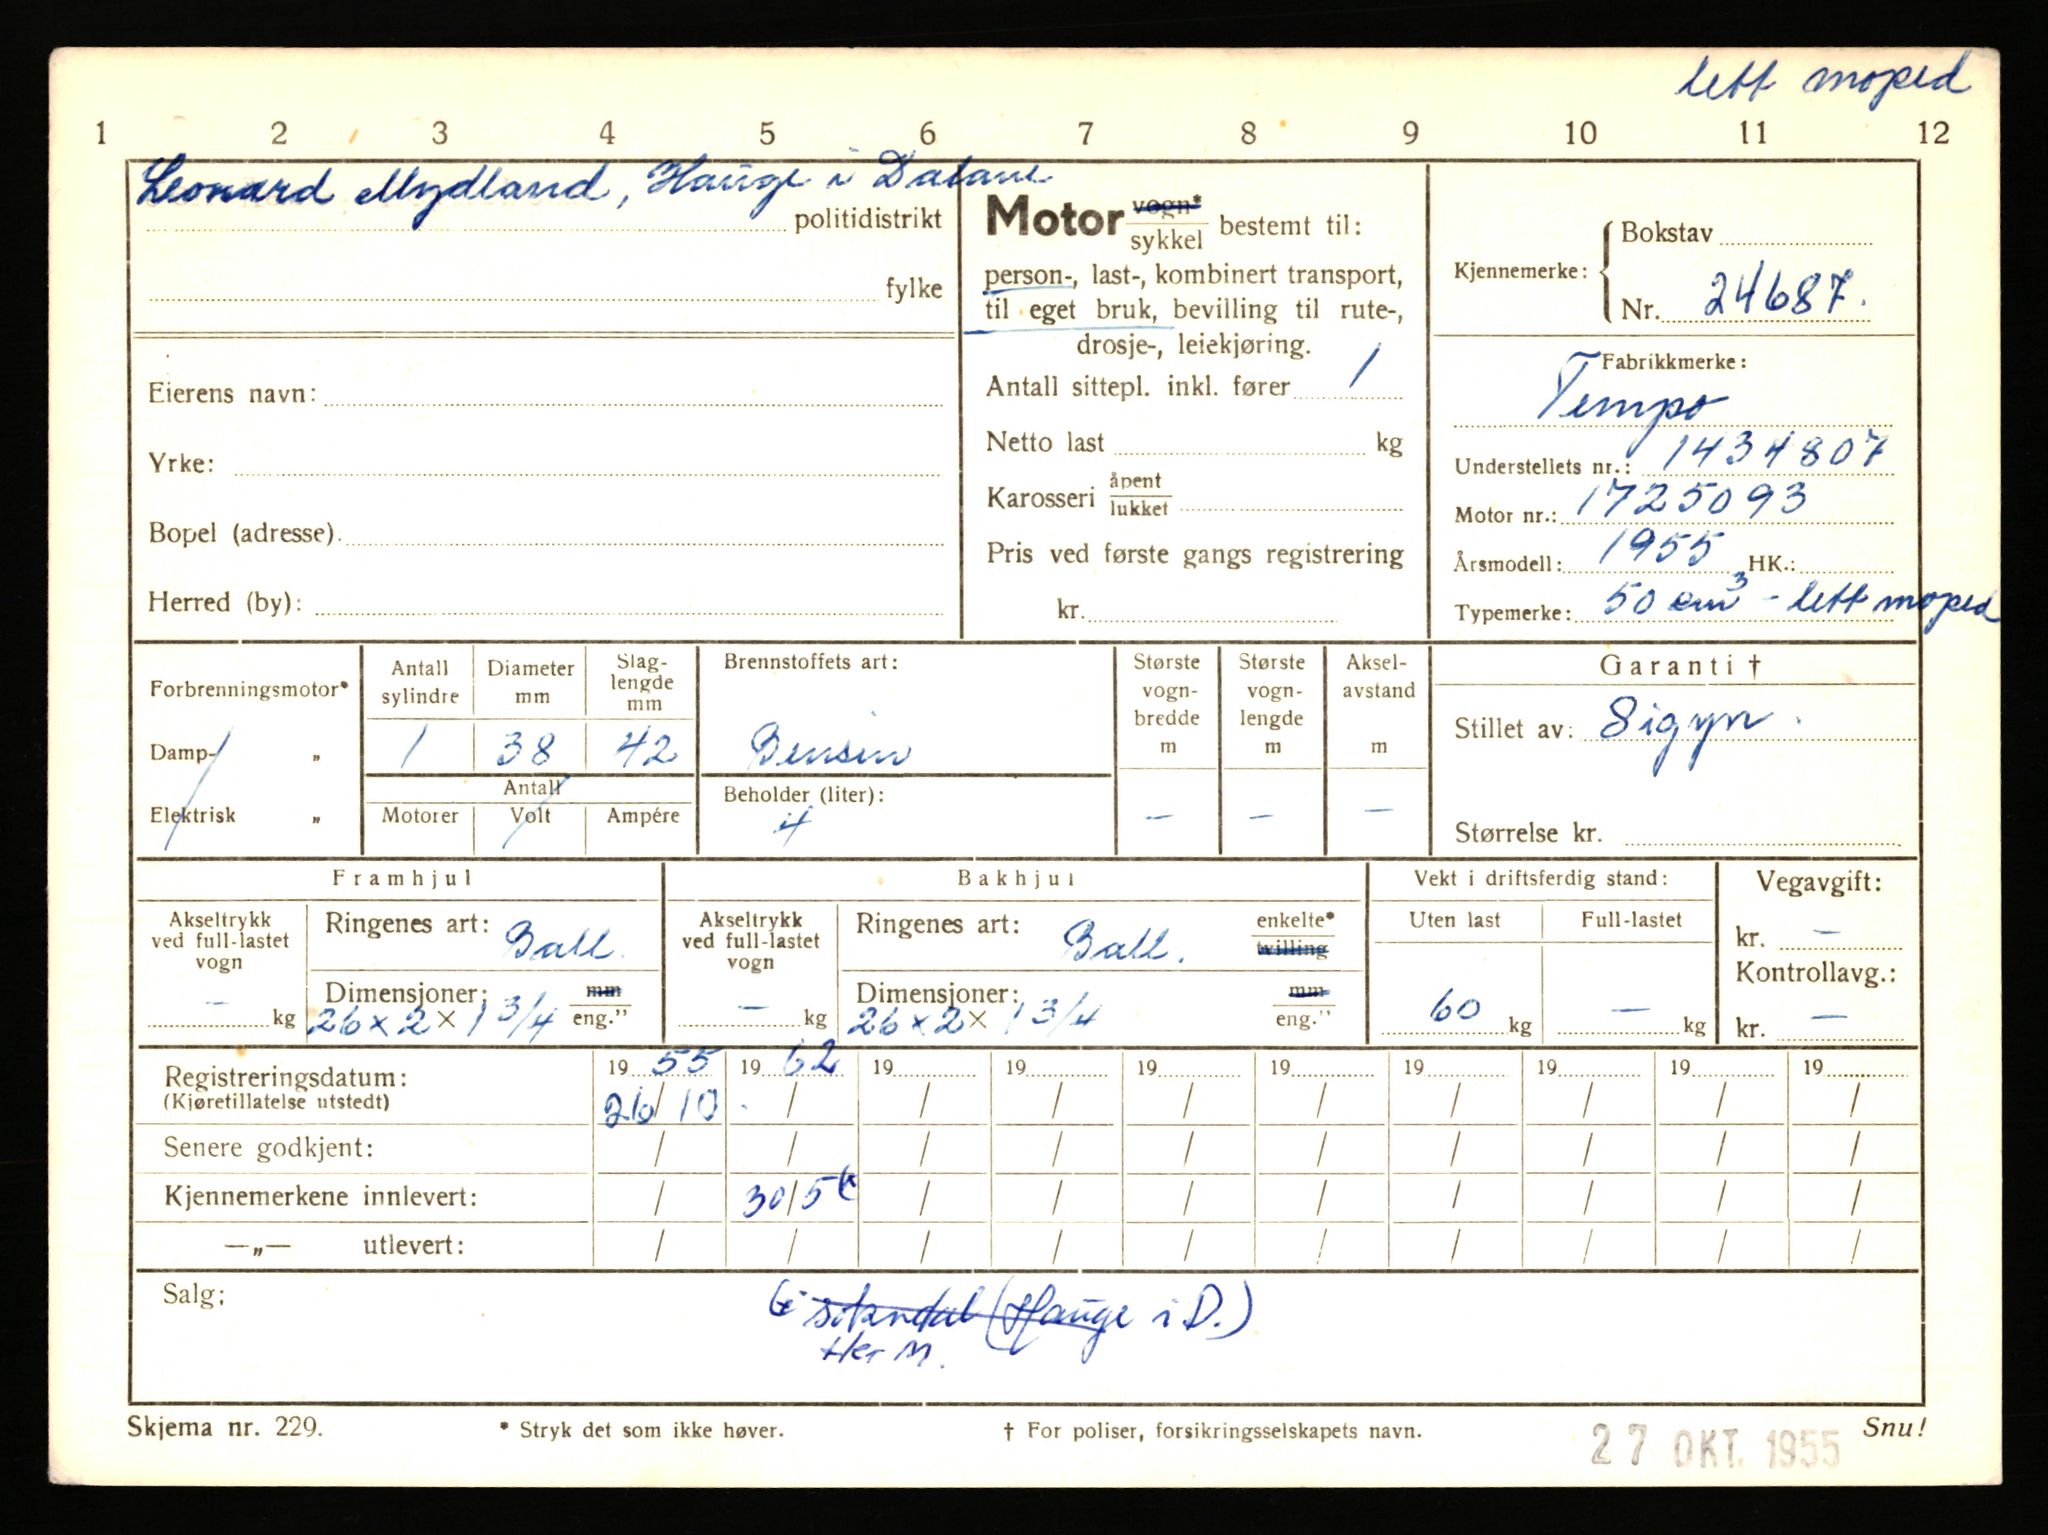 lett moped
1 2 3 4 5 6 7 8 9 10 11 12
Leonard Mydland, Hauge i Dalane
politidistrikt
fylke
Eierens navn:
Yrke:
Bopel (adresse)
Herred (by):
Motor vogn* sykkel bestemt til:
person-, last-, kombinert transport,
til eget bruk, bevilling til rute-,
drosje-, leiekjøring.
Antall sittepl. inkl. fører 1
Netto last kg
Karosseri åpent lukket
Pris ved første gangs registrering
kr.
Kjennemerke: Bokstav
Nr. 24687.
Fabrikkmerke:
Tempo
Understellets nr.: 1434807
Motor nr.: 1725093
Årsmodell: 1955 HK.:
Typemerke: 50 cm³ - lett moped
Forbrenningsmotor*
Damp- „
Elektrisk „
Antall sylindre
Diameter mm
Slag-lengde mm
1 38 42
Antall
Motorer Volt Ampére
Brennstoffets art:
Bensin
Beholder (liter):
4
Største vogn-bredde m
Største vogn-lengde m
Aksel-avstand m
— — —
Garanti †
Stillet av: Sigyn.
Størrelse kr.
Framhjul
Akseltrykk ved full-lastet vogn
— kg
Ringenes art: Ball.
Dimensjoner: mm eng.”
26 x 2 x 1 3/4
Bakhjul
Akseltrykk ved full-lastet vogn
— kg
Ringenes art: Ball. enkelte* tvilling
Dimensjoner: mm eng.”
26 x 2 x 1 3/4
Vekt i driftsferdig stand:
Uten last Full-lastet
60 kg — kg
Vegavgift:
kr. —
Kontrollavg.:
kr. —
Registreringsdatum: 19 55 19 62 19 19 19 19 19 19 19 19
(Kjøretillatelse utstedt) 26/10 / / / / / / / / /
Senere godkjent: / / / / / / / / / /
Kjennemerkene innlevert: / 30/5 / / / / / / / /
—„— utlevert: / / / / / / / / / /
Salg:
(Hauge i D.)
Her M.
Skjema nr. 229. * Stryk det som ikke høver. † For poliser, forsikringsselskapets navn. 27 OKT. 1955 Snu!